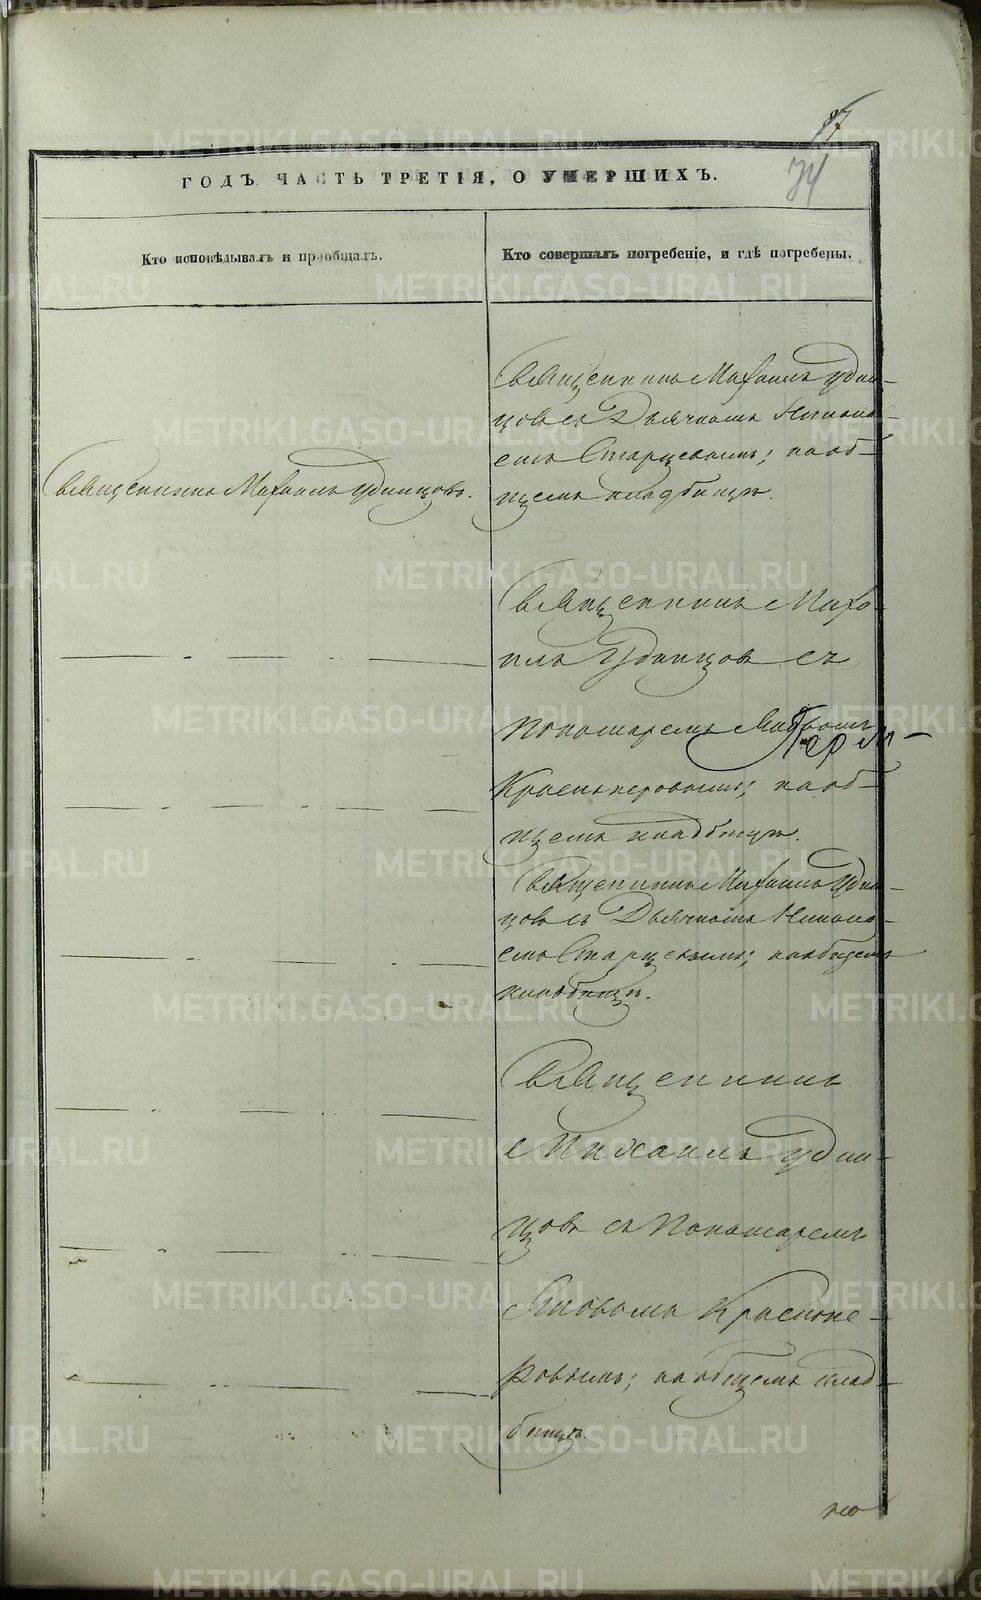 87
74
ГОДЪ ЧАСТЬ ТРЕТІЯ, О УМЕРШИХЪ.
Кто исповѣдывалъ и пріобщалъ.
Кто совершалъ погребеніе, и гдѣ погребены.
Священникъ Михаилъ Удинцовъ.
Священникъ Михаилъ Удин-
цовъ съ Дьячкомъ Никола-
емъ Старцевымъ; на об-
щемъ кладбищѣ.
Священникъ Миха-
илъ Удинцовъ съ
Пономаремъ
наоб-
щемъ кладбищѣ.
Священникъ Михаилъ Удин-
цовъ съ Дьячкомъ Никола-
емъ Старцевымъ; на общемъ
кладбищѣ.
Священникъ
Михаилъ Удин-
цовъ съ Пономаремъ
Яковомъ Краснопе-
ровымъ; на общемъ клад-
бищѣ.
METRIKI.GASO-URAL.RU